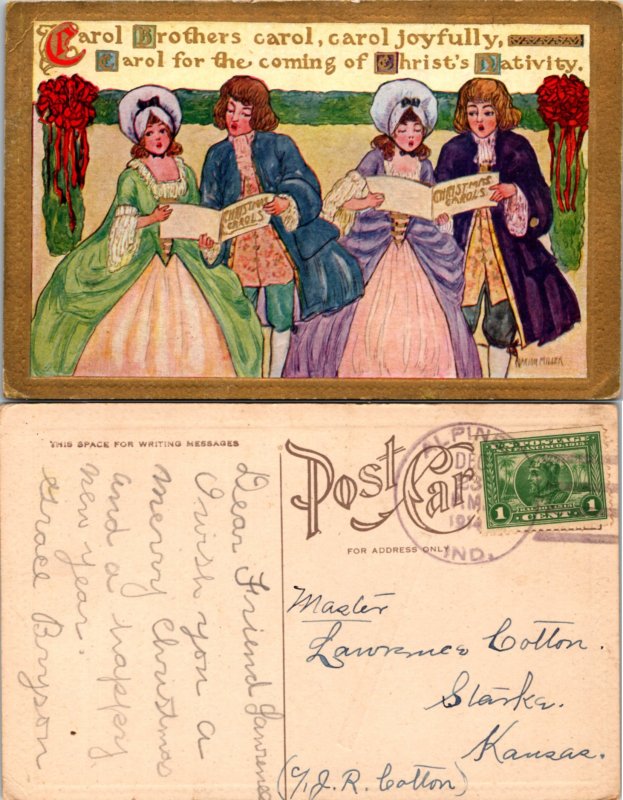 Carol Brothers carol, carol joyfully,
Carol for the coming of Christ's Nativity.
CHRISTMAS
CAROLS
CHRISTMAS
CAROLS
MARION MILLER
THIS SPACE FOR WRITING MESSAGES
Dear Friend Lawrence
I wish you a
merry Christmas
and a happy
new year.
Grace Bryson
Post Card
FOR ADDRESS ONLY
ALPIN
DE
1914
IND.
U.S. POSTAGE
SAN FRANCISCO 1915
1 CENT 1
Master
Lawrence Cotton.
Starke.
Kansas.
(c/o J. R. Cotton)